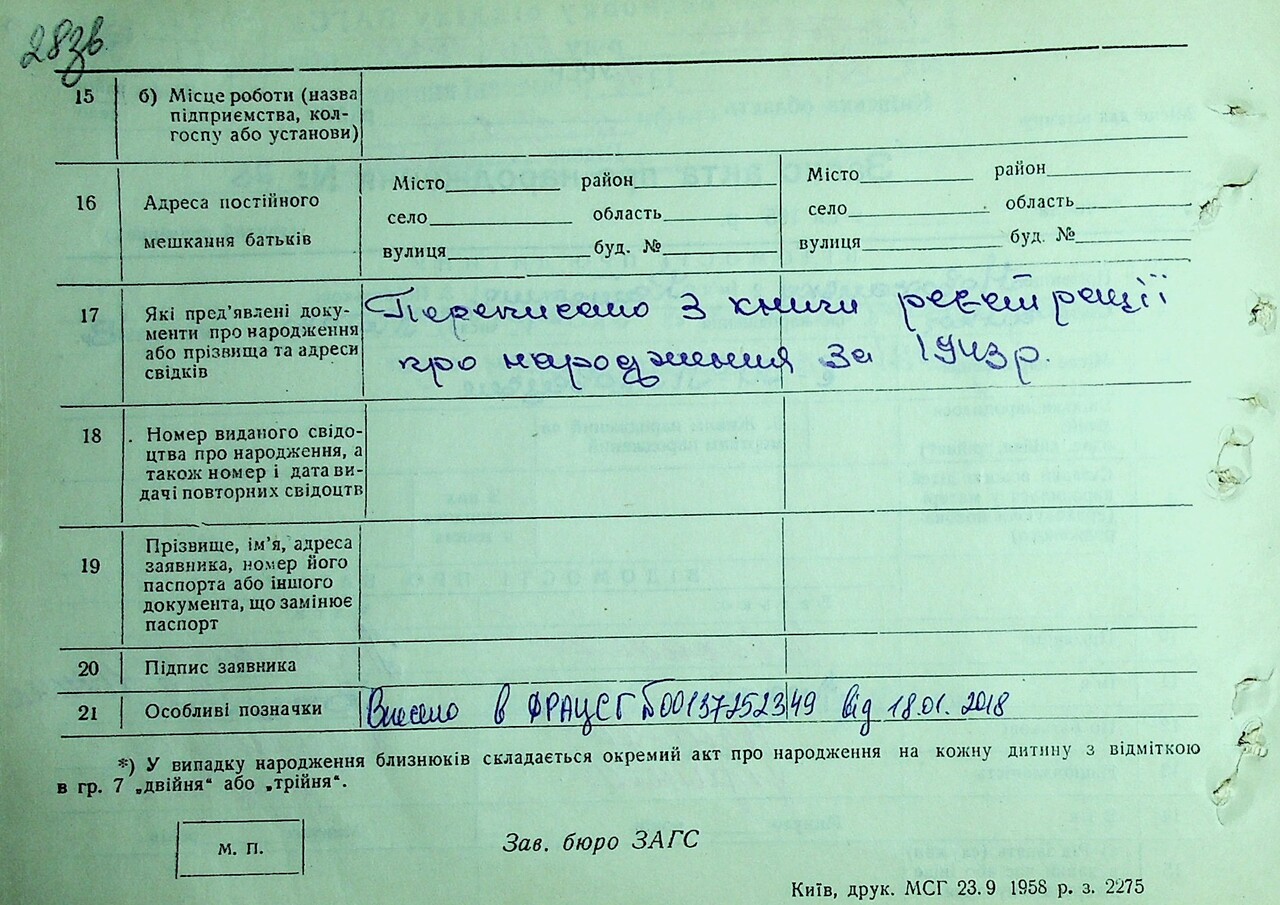 28зв.
15 б) Місце роботи (назва
підприємства, кол-
госпу або установи)
16 Адреса постійного
мешкання батьків
Місто район
село область
вулиця буд. №
Місто район
село область
вулиця буд. №
17 Які пред’явлені доку-
менти про народження
або прізвища та адреси
свідків
Переписано з книги реєстрації
про народження за 1943р.
18 Номер виданого свідо-
цтва про народження, а
також номер і дата ви-
дачі повторних свідоцтв
19 Прізвище, ім’я, адреса
заявника, номер його
паспорта або іншого
документа, що замінює
паспорт
20 Підпис заявника
21 Особливі позначки
Внесено в ФРАЦСГ №00137252349 від 18.01.2018
*) У випадку народження близнюків складається окремий акт про народження на кожну дитину з відміткою
в гр. 7 „двійня“ або „трійня“.
М. П.
Зав. бюро ЗАГС
Київ, друк. МСГ 23.9 1958 р. з. 2275